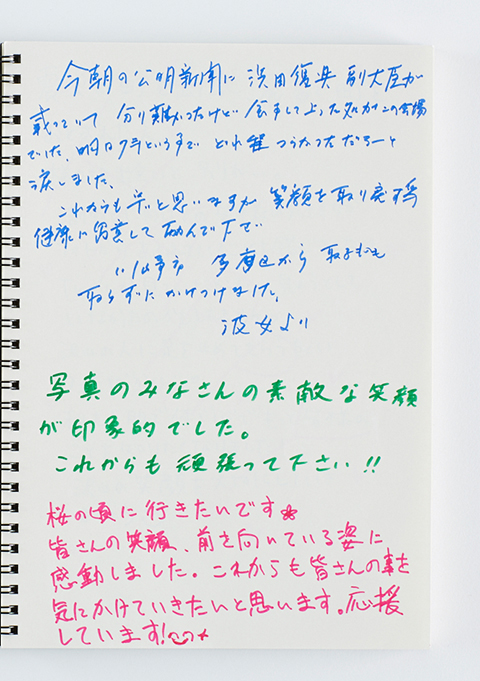 今朝の公明新聞に 浜田復興 副大臣が
載っていて 分り難かったけど
でした、明日 どれ程 つらかっただろーと
涙しました、
これからも 大変と思いますが 笑顔を取り戻す為
健康に留意して 励んで下さい
川崎市 多摩区から 取るものも
取らずにかけつけました。
波女より
写真のみなさんの素敵な笑顔
が印象的でした。
これからも頑張って下さい!!
桜の頃に行きたいです
皆さんの笑顔、前を向いている姿に
感動しました。これからも皆さんの事を
気にかけていきたいと思います。応援
しています!